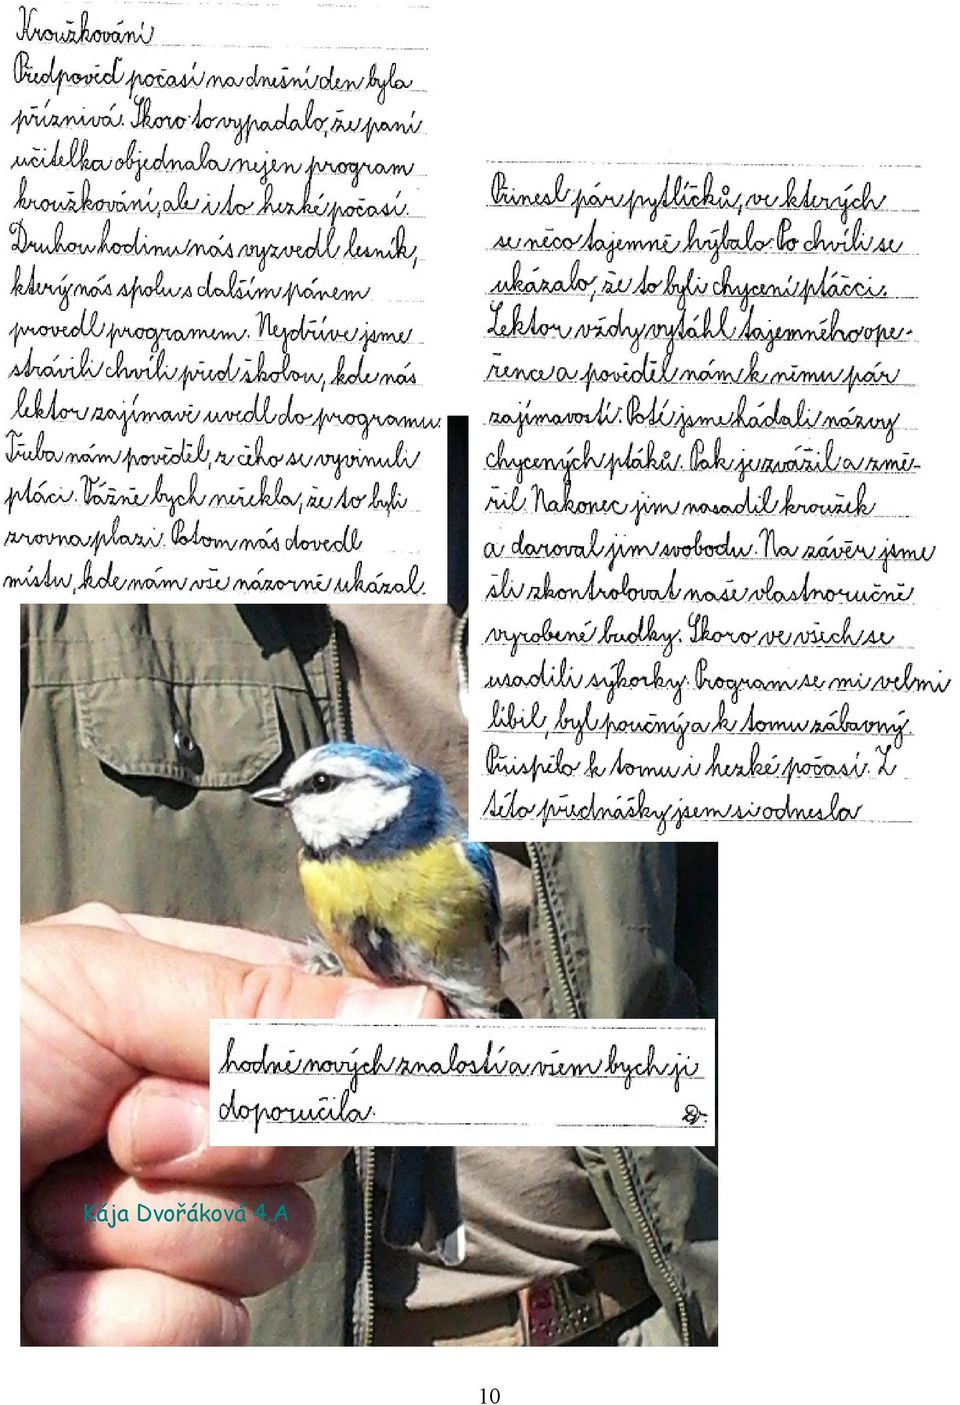 Kroužkování
Předpověď počasí na dnešní den byla
příznivá. Skoro to vypadalo, že paní
učitelka objednala nejen program
kroužkování, ale i to hezké počasí.
Druhou hodinu nás vyzvedl lesník,
který nás spolu s dalším pánem
provedl programem. Nejdříve jsme
strávili chvíli před školou, kde nás
lektor zajímavě uvedl do programu.
Třeba nám pověděl, z čeho se vyvinuli
ptáci. Vážně bych neřekla, že to byli
zrovna plazi. Potom nás dovedl
místu, kde nám vše názorně ukázal.
Přinesl pár pytlíčků, ve kterých
se něco tajemně hýbalo. Po chvíli se
ukázalo, že to byli chycení ptáčci.
Lektor vždy vytáhl tajemného ope-
řence a pověděl nám k němu pár
zajímavostí. Poté jsme hádali názvy
chycených ptáků. Pak je zvážil a změ-
řil. Nakonec jim nasadil kroužek
a daroval jim svobodu. Na závěr jsme
šli zkontrolovat naše vlastnoručně
vyrobené budky. Skoro ve všech se
usadili sýkorky. Program se mi velmi
líbil, byl poučný a k tomu zábavný.
Přispělo k tomu i hezké počasí. Z
této přednášky jsem si odnesla
hodně nových znalostí a všem bych ji
doporučila.
Kája Dvořáková 4.A
10